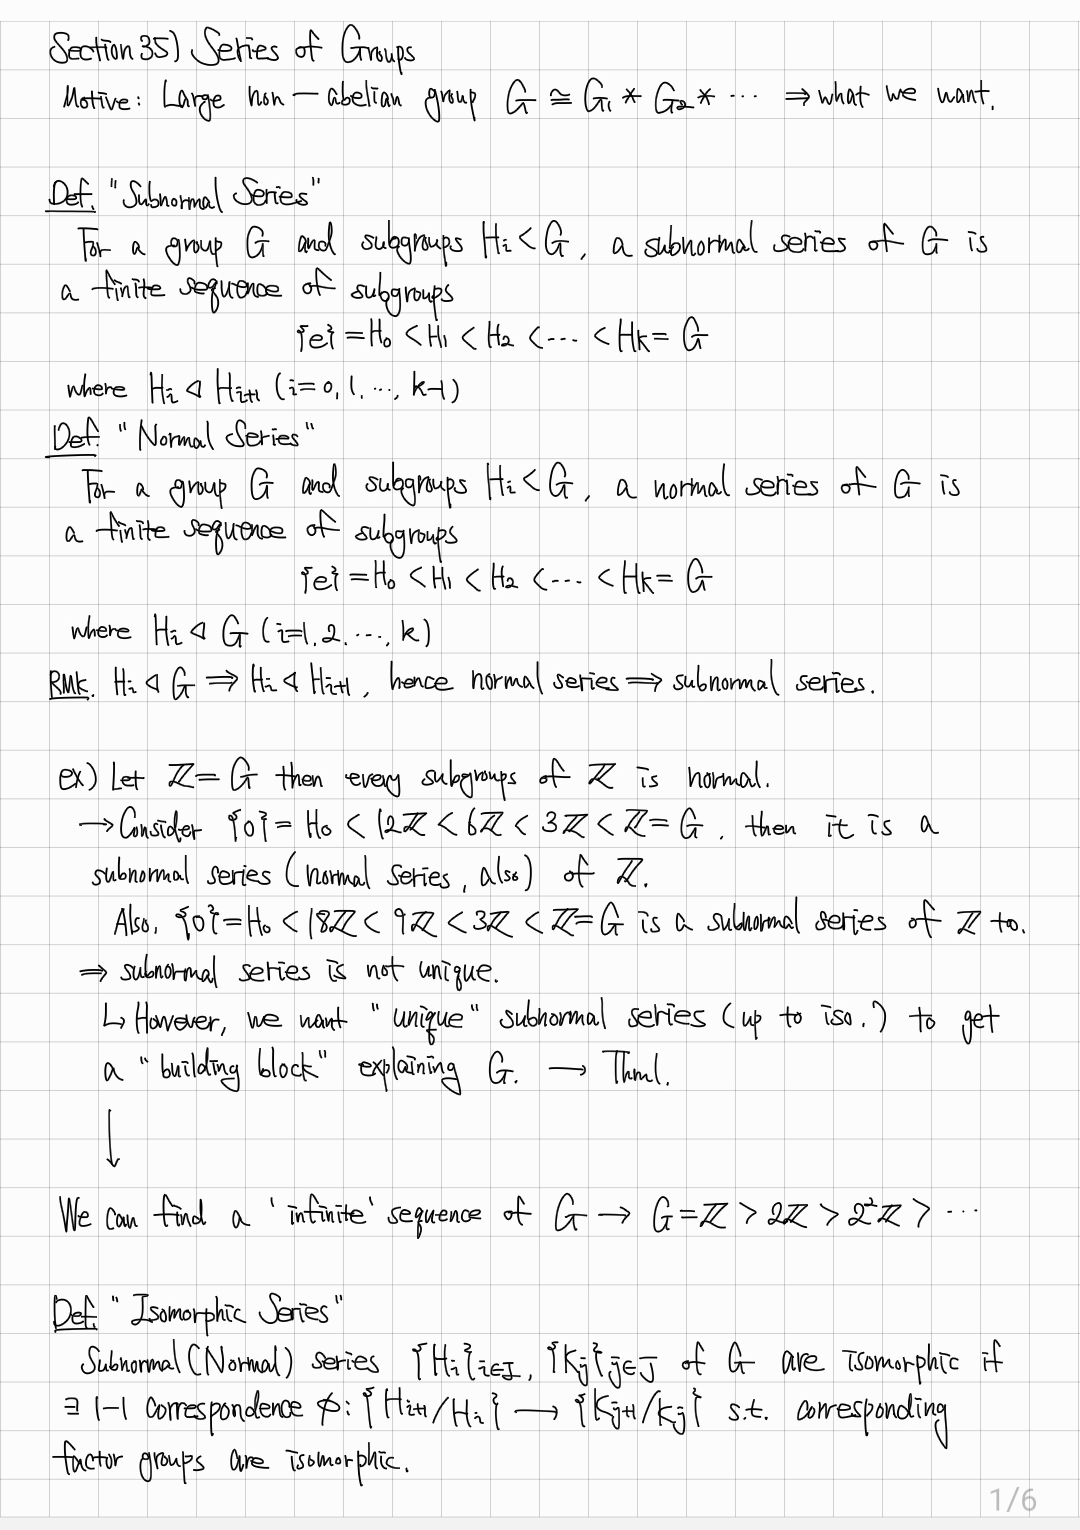 Section 35) Series of Groups
Motive: Large non-abelian group G ≅ G₁ * G₂ * ⋯ ⇒ what we want.
Def. "Subnormal Series"
For a group G and subgroups Hᵢ < G, a subnormal series of G is
a finite sequence of subgroups
{e} = H₀ < H₁ < H₂ < ⋯ < Hₖ = G
where Hᵢ ◁ Hᵢ₊₁ (i=0, 1, ⋯, k-1)
Def. "Normal Series"
For a group G and subgroups Hᵢ < G, a normal series of G is
a finite sequence of subgroups
{e} = H₀ < H₁ < H₂ < ⋯ < Hₖ = G
where Hᵢ ◁ G (i=1, 2, ⋯, k)
RMK. Hᵢ ◁ G ⟹ Hᵢ ◁ Hᵢ₊₁, hence normal series ⟹ subnormal series.
ex) Let ℤ = G then every subgroups of ℤ is normal.
→ Consider {0} = H₀ < 12ℤ < 6ℤ < 3ℤ < ℤ = G, then it is a
subnormal series (normal series, also) of ℤ.
Also, {0} = H₀ < 18ℤ < 9ℤ < 3ℤ < ℤ = G is a subnormal series of ℤ to.
⇒ subnormal series is not unique.
↳ However, we want "unique" subnormal series (up to iso.) to get
a "building block" explaining G. → Thm1.
↓
We can find a 'infinite' sequence of G → G = ℤ > 2ℤ > 2²ℤ > ⋯
Def. "Isomorphic Series"
Subnormal (Normal) series {Hᵢ}i∈I, {Kⱼ}j∈J of G are isomorphic if
∃ 1-1 correspondence φ: {Hᵢ₊₁/Hᵢ} → {Kⱼ₊₁/Kⱼ} s.t. corresponding
factor groups are isomorphic.
1/6